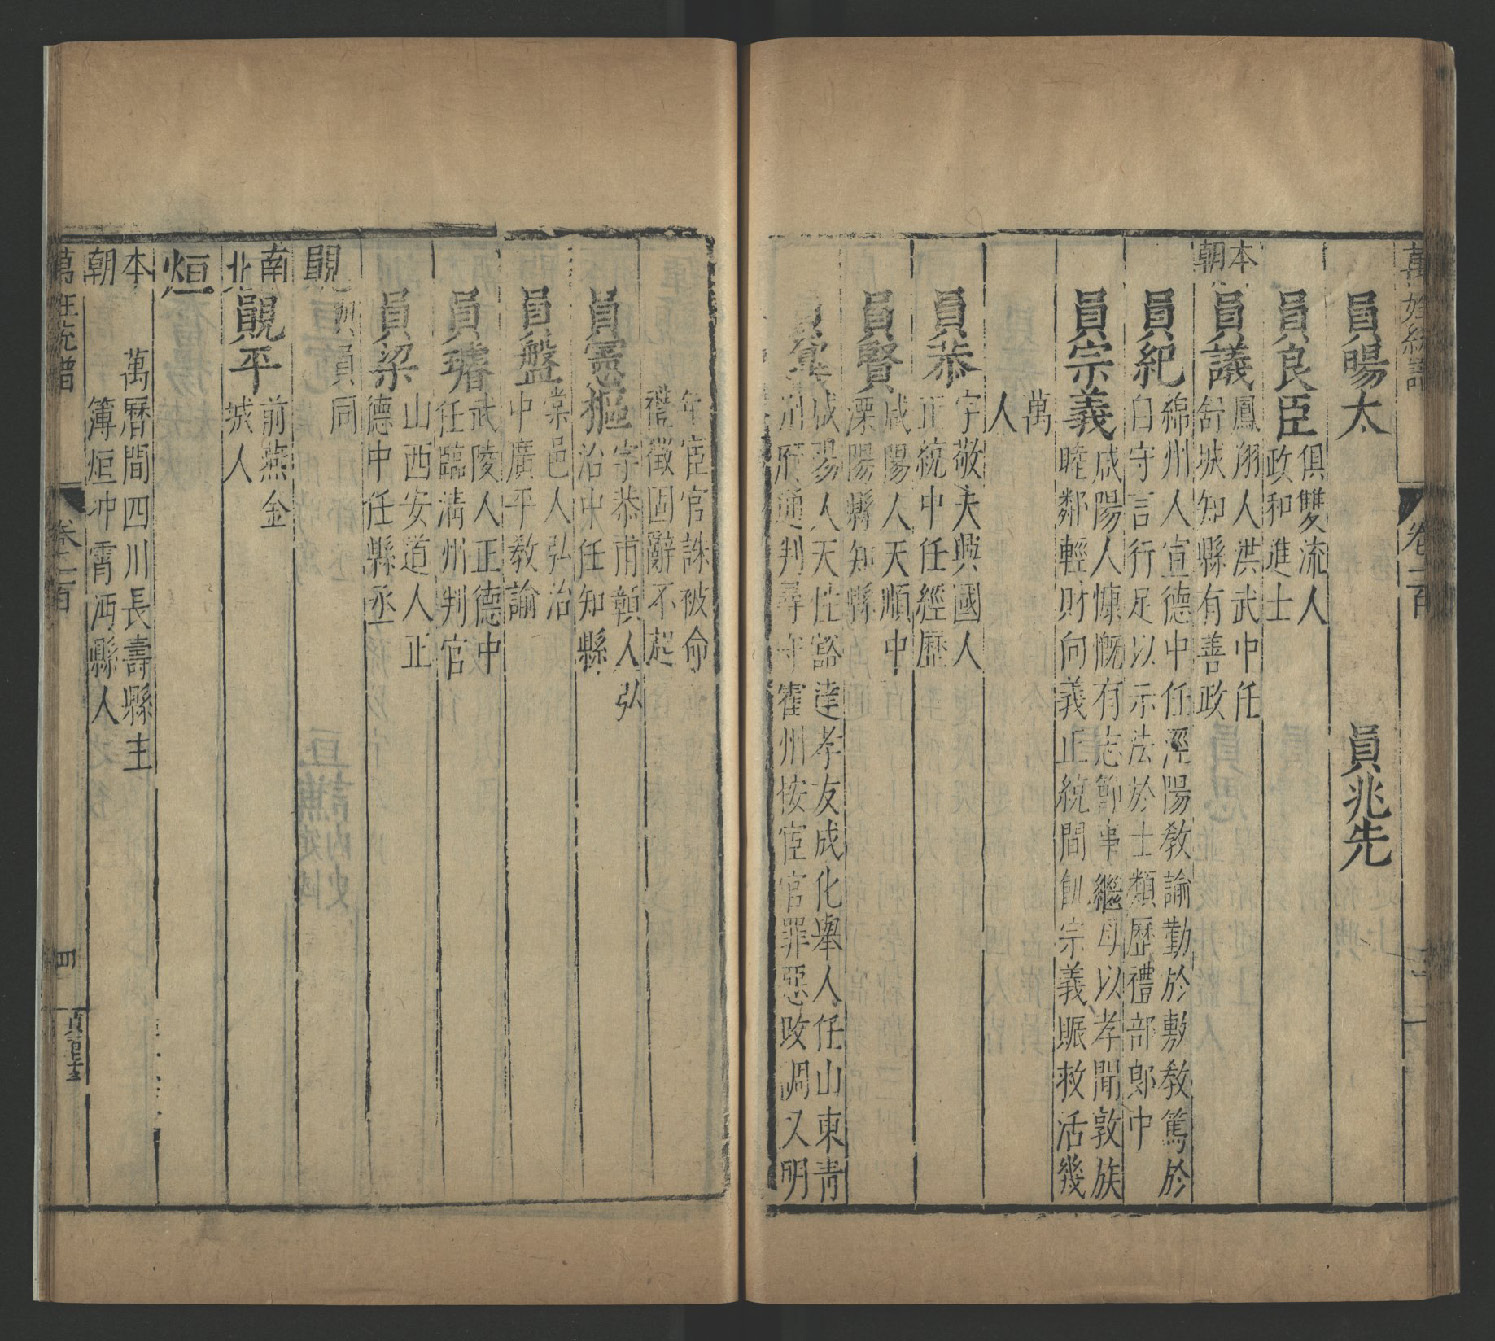 萬姓統譜
卷一百
員暘太
員兆先
員良臣
俱雙流人
政和進士
本
朝
員議
鳳翔人洪武中任
舒城知縣有善政
員紀
綿州人宣德中任涇陽教諭勤於敷教篤於
白守言行足以示法於士類歷禮部郎中
員宗義
咸陽人慷慨有志節事繼母以孝聞敦族
睦鄰輕財向義正統間飢宗義賑救活幾
萬
人
員恭
字敬夫興國人
正統中任經歷
員賢
咸陽人天順中
溧陽縣知縣
咸陽人天性豁達孝友成化舉人任山東青
州府通判尋守霍州按宦官罪惡改調又明
年宦官誅被命
禮徵固辭不起
員憲樞
字恭甫幀人弘
治中任知縣
員盤
棠邑人弘治
中廣平教諭
員璿
武陵人正德中
任臨淸州判官
員梁
山西安道人正
德中任縣丞
員同
南
北
覞平
前燕金
城人
烜
本
朝
萬曆間四川長壽縣主
簿烜冲霄沔縣人
萬姓統譜
卷一百
四